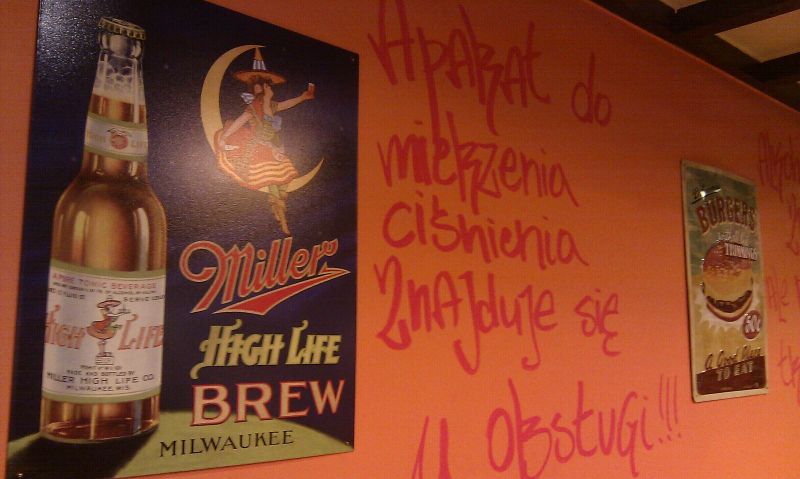 LIFE
A PURE TONIC BEVERAGE
HIGH LIFE
MILLER HIGH LIFE CO.
MILWAUKEE, WIS.
Miller
HIGH LIFE
BREW
MILWAUKEE
Aparat do
mierzenia
ciśnienia
znajduje się
u obsługi!!!
BURGERS
TRIMMINGS
50¢
A Good Place
TO EAT